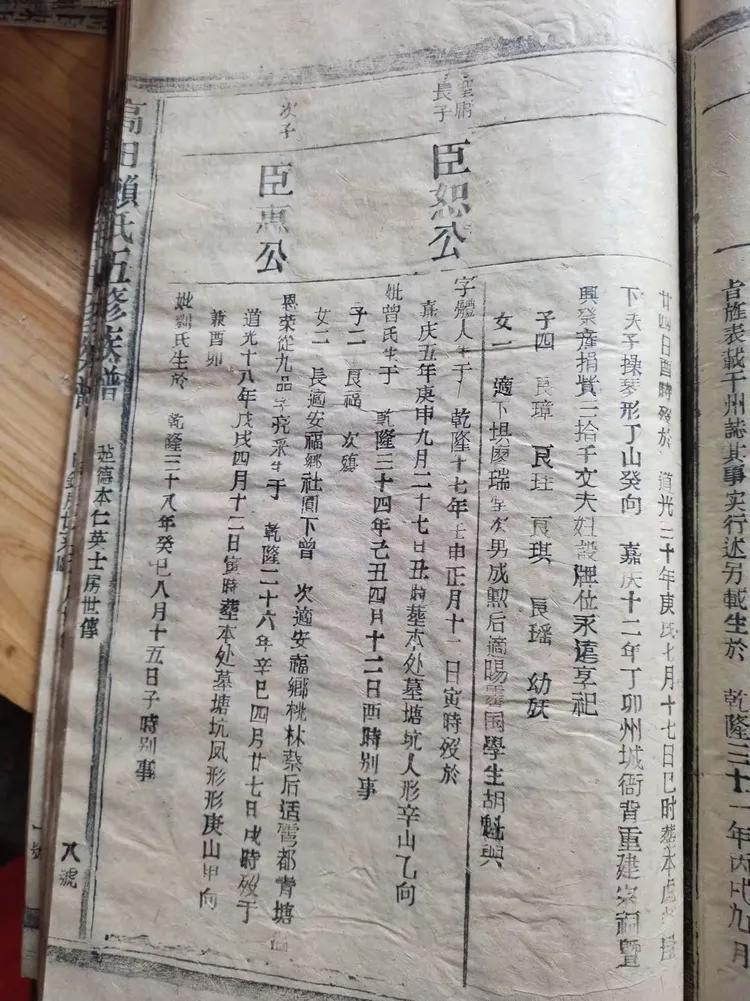 者旌表載于州誌其事实行述另載生於 乾隆三十一年丙戌九月
廿四日酉時殁於 道光三十年庚戌七月十七日巳时葬本处
下天子操琴形丁山癸向 嘉庆十二年丁卯州城衙背重建宗祠暨
興癸產捐貲三拾千文夫妣設牌位永遠享祀
子四 良璋 良玨 良琪 良瑶 幼妖
女一 適下埧廖瑞生次男成勲后適陽霽國學生胡魁興
聖庸長子
臣恕公
字體人生于 乾隆十七年壬申正月十一日寅時殁於
嘉庆五年庚申九月二十七日丑時葬本处墓塘坑人形辛山乙向
妣曾氏生于 乾隆三十四年己丑四月十二日酉時别事
子二 良福 次殤
女二 長適安福鄉社圓下曾 次適安福鄉桃林蔡后适雩都青塘
次子
臣惠公
恩荣從九品字亮采生于 乾隆二十六年辛巳四月廿七日戌時殁于
道光十八年戊戌四月十二日寅時葬本处墓塘坑凤形形庚山甲向
兼酉卯
妣劉氏生於 乾隆三十八年癸巳八月十五日子時别事
高田賴氏五修族譜
起德本仁英士房世傳
八號